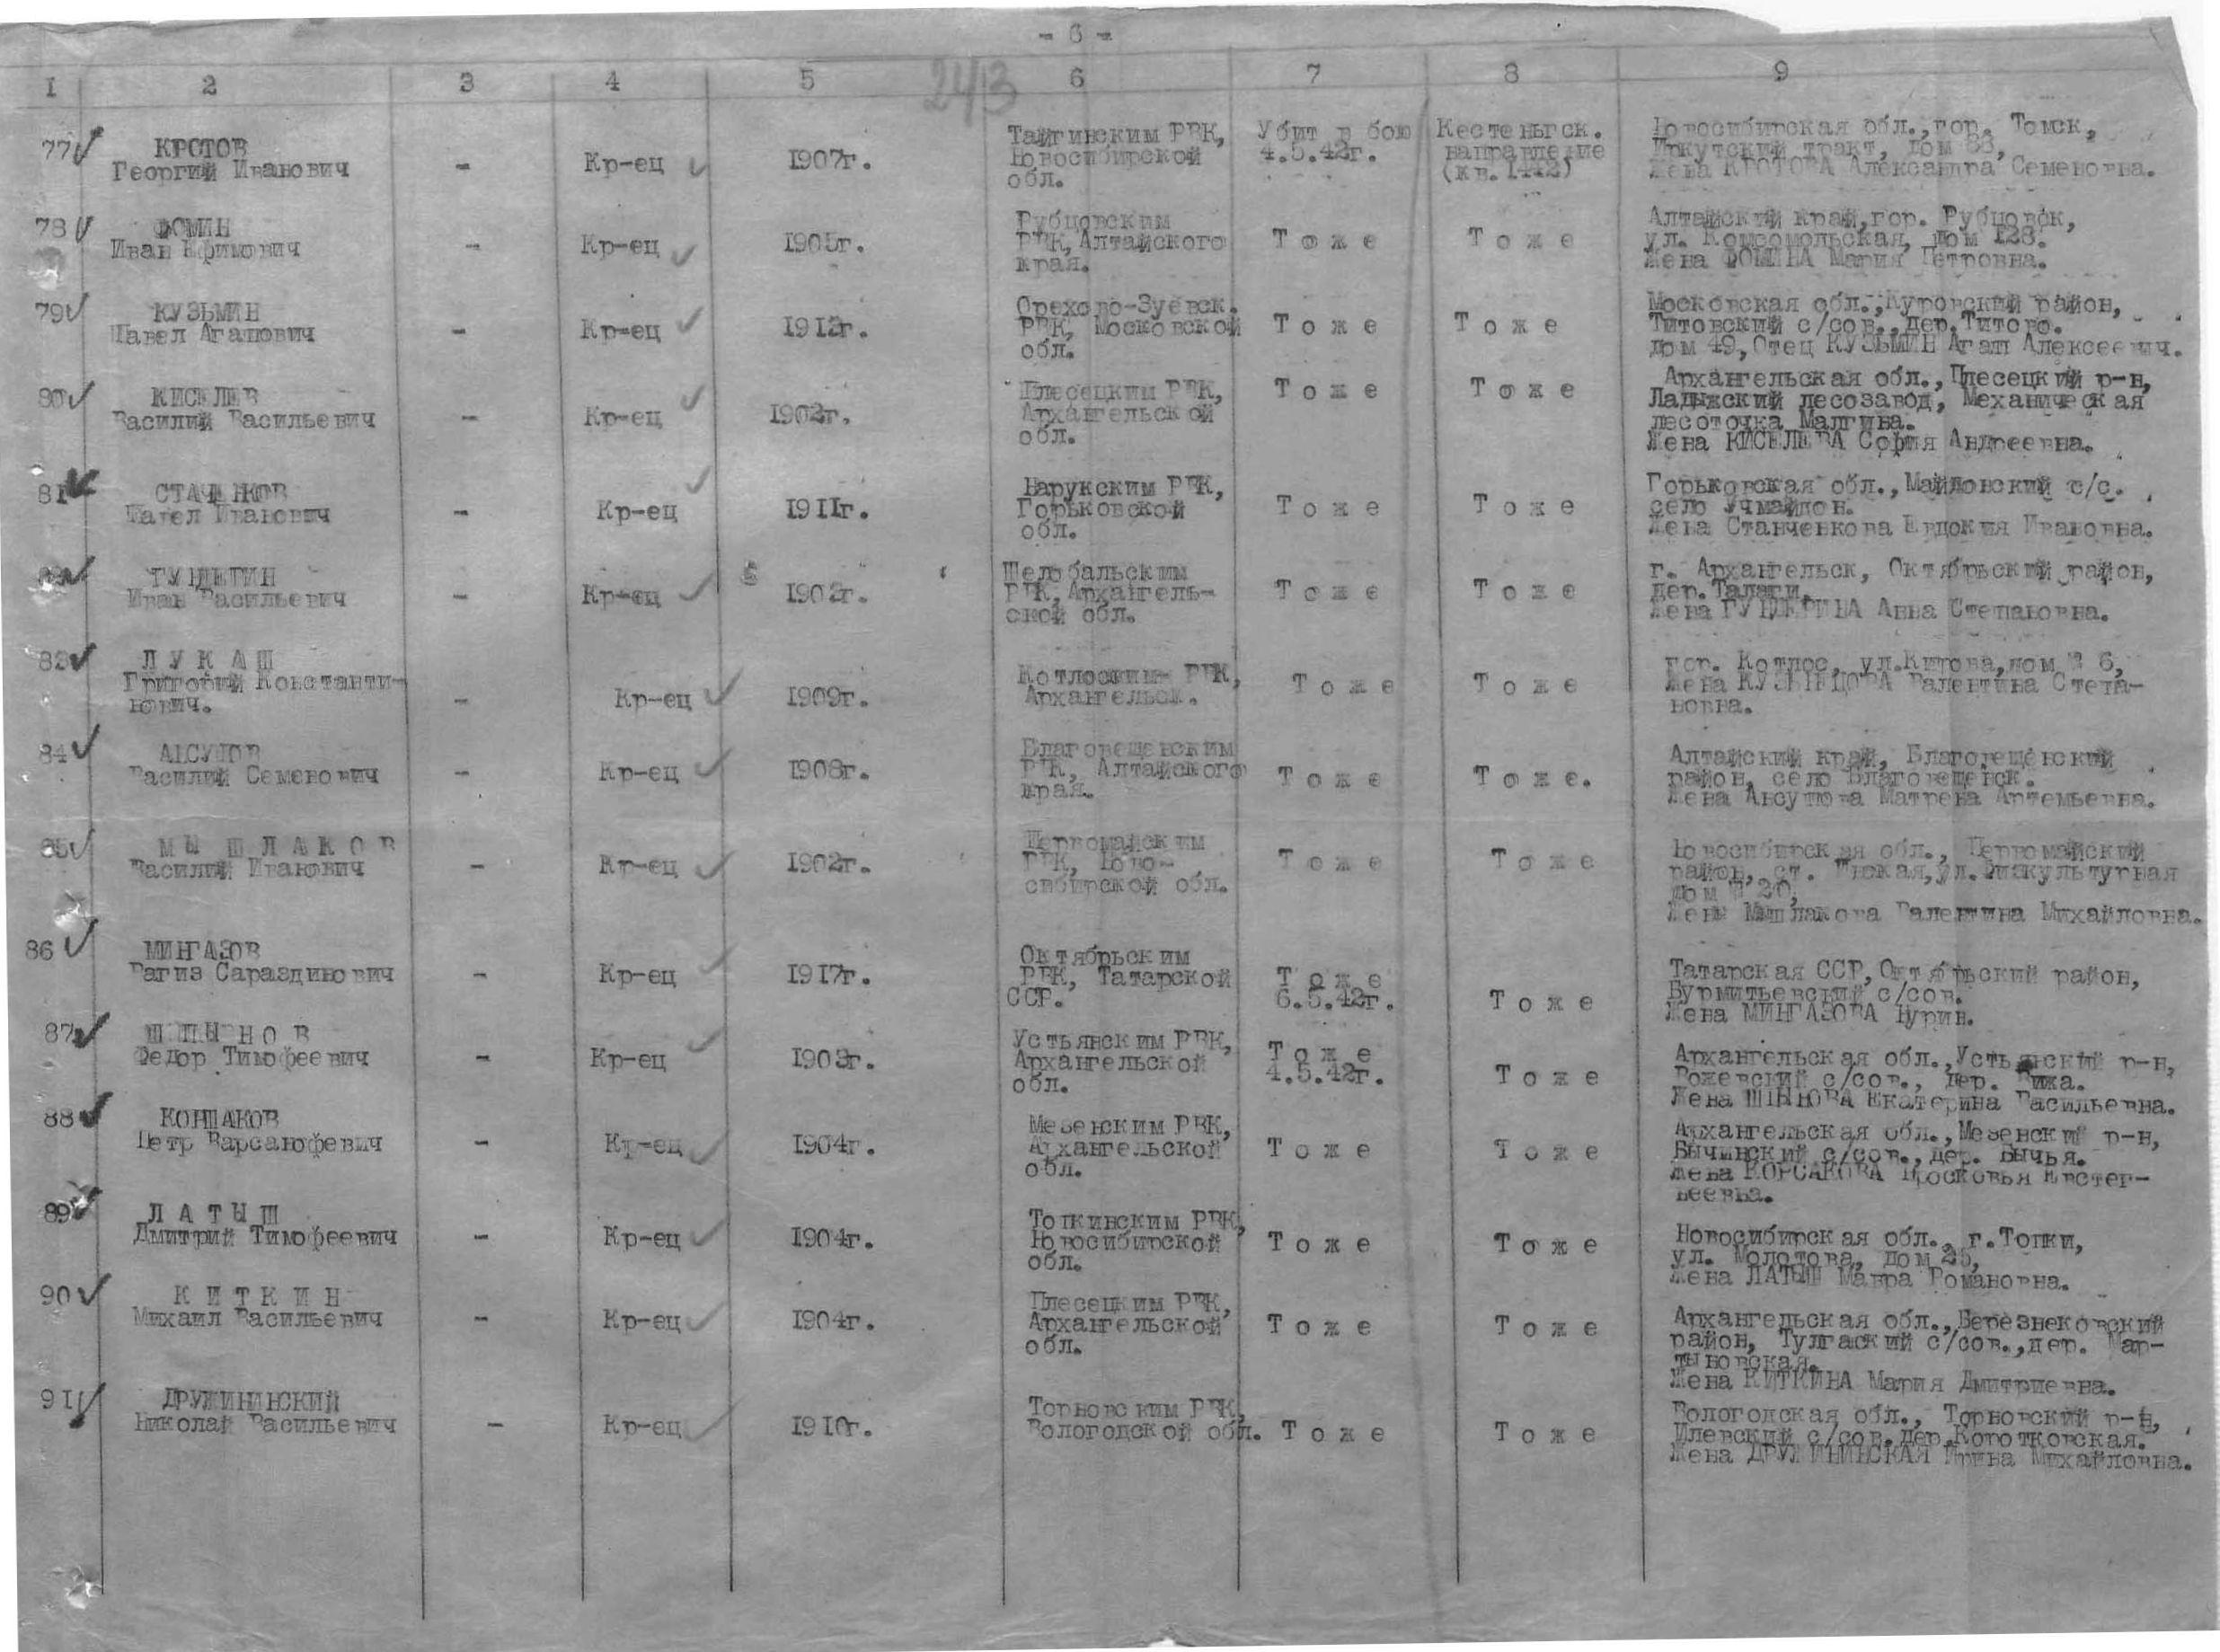 - 6 -
1 2 3 4 5 6 7 8 9
24/3
77 КРОТОВ
Георгий Иванович
-
Кр-ец
1907г.
Тайгинским РВК,
Новосибирской
обл.
Убит в бою
4.5.42г.
Кестеньгск.
направление
(кв. 1442)
Новосибирская обл., гор. Томск,
Иркутский тракт, дом
Жена КРОТОВА Александра Семеновна.
78 ФОМИН
Иван Ефимович
-
Кр-ец
1905г.
Рубцовским
РВК, Алтайского
края.
Т о ж е
Т о ж е
Алтайский край, гор. Рубцовск,
ул. Комсомольская, дом 128.
Жена ФОМИНА Мария Петровна.
79 КУЗЬМИН
Павел Агапович
-
Кр-ец
1912г.
Орехово-Зуевск.
РВК, Московской
обл.
Т о ж е
Т о ж е
Московская обл., Куровский район,
Титовский с/сов., дер. Титово.
дом 49, Отец КУЗЬМИН Агап Алексеевич.
80 КИСЕЛЕВ
Василий Васильевич
-
Кр-ец
1902г.
Плесецким РВК,
Архангельской
обл.
Т о ж е
Т о ж е
Архангельская обл., Плесецкий р-н,
Ладыжский лесозавод, Механическая
лесоточка Малгина.
Жена КИСЕЛЕВА София Андреевна.
81 СТАЧЕНКОВ
Павел Иванович
-
Кр-ец
1911г.
Варукским РВК,
Горьковской
обл.
Т о ж е
Т о ж е
Горьковская обл., Майдонский с/с.
село Учмайдон.
Жена Станченкова Евдокия Ивановна.
ГУНДЕРИН
Иван Васильевич
-
Кр-ец
1902г.
Шелобальским
РВК, Архангель-
ской обл.
Т о ж е
Т о ж е
г. Архангельск, Октябрьский район,
дер. Талаги.
Жена ГУНДЕРИНА Анна Степановна.
83 Л У К А Ш
Григорий Константи-
нович.
-
Кр-ец
1909г.
Котлоским РВК,
Архангельск.
Т о ж е
Т о ж е
гор. Котлос, ул. Китова, дом № 6,
Жена КУЗНЕЦОВА Валентина Степа-
новна.
84 АКСУТОВ
Василий Семенович
-
Кр-ец
1908г.
Благовещенским
РВК, Алтайского
края.
Т о ж е
Т о ж е.
Алтайский край, Благовещенский
район, село Благовещенск.
Жена Матрена Артемьевна.
85 М Ы Ш Л А К О В
Василий Иванович
-
Кр-ец
1902г.
Первомайским
РВК, Ново-
сибирской обл.
Т о ж е
Т о ж е
Новосибирская обл., Первомайский
район, ст. Инская, ул. Физкультурная
дом № 20,
Жена Мышлакова Валентина Михайловна.
86 МИНГАЗОВ
Рагиз Сараздинович
-
Кр-ец
1917г.
Октябрьским
РВК, Татарской
ССР.
Т о ж е
6.5.42г.
Т о ж е
Татарская ССР, Октябрьский район,
Бурмитьевский с/сов.
Жена МИНГАЗОВА Нурин.
87 Ш П Ы Н О В
Федор Тимофеевич
-
Кр-ец
1903г.
Устьянским РВК,
Архангельской
обл.
Т о ж е
4.5.42г.
Т о ж е
Архангельская обл., Устьянский р-н,
Рожевский с/сов., дер.
Жена ШПЫНОВА Екатерина Васильевна.
88 КОНШАКОВ
Петр Варсанофевич
-
Кр-ец
1904г.
Мезенским РВК,
Архангельской
обл.
Т о ж е
Т о ж е
Архангельская обл., Мезенский р-н,
Бычинский с/сов., дер. Бычья.
Жена КОРСАКОВА Просковья Евстег-
неевна.
89 Л А Т Ы Ш
Дмитрий Тимофеевич
-
Кр-ец
1904г.
Топкинским РВК,
Новосибирской
обл.
Т о ж е
Т о ж е
Новосибирская обл., г. Топки,
ул. Молотова, дом 25,
Жена ЛАТЫШ Мавра Романовна.
90 К И Т К И Н
Михаил Васильевич
-
Кр-ец
1904г.
Плесецким РВК,
Архангельской
обл.
Т о ж е
Т о ж е
Архангельская обл., Березнековский
район, Тулгаский с/сов., дер. Мар-
тыновская.
Жена КИТКИНА Мария Дмитриевна.
91 ДРУЖИНИНСКИЙ
Николай Васильевич
-
Кр-ец
1910г.
Торновским РВК,
Вологодской обл.
Т о ж е
Т о ж е
Вологодская обл., Торновский р-н,
Илевский с/сов. дер. Коротковская.
Жена ДРУЖИНИНСКАЯ Ирина Михайловна.